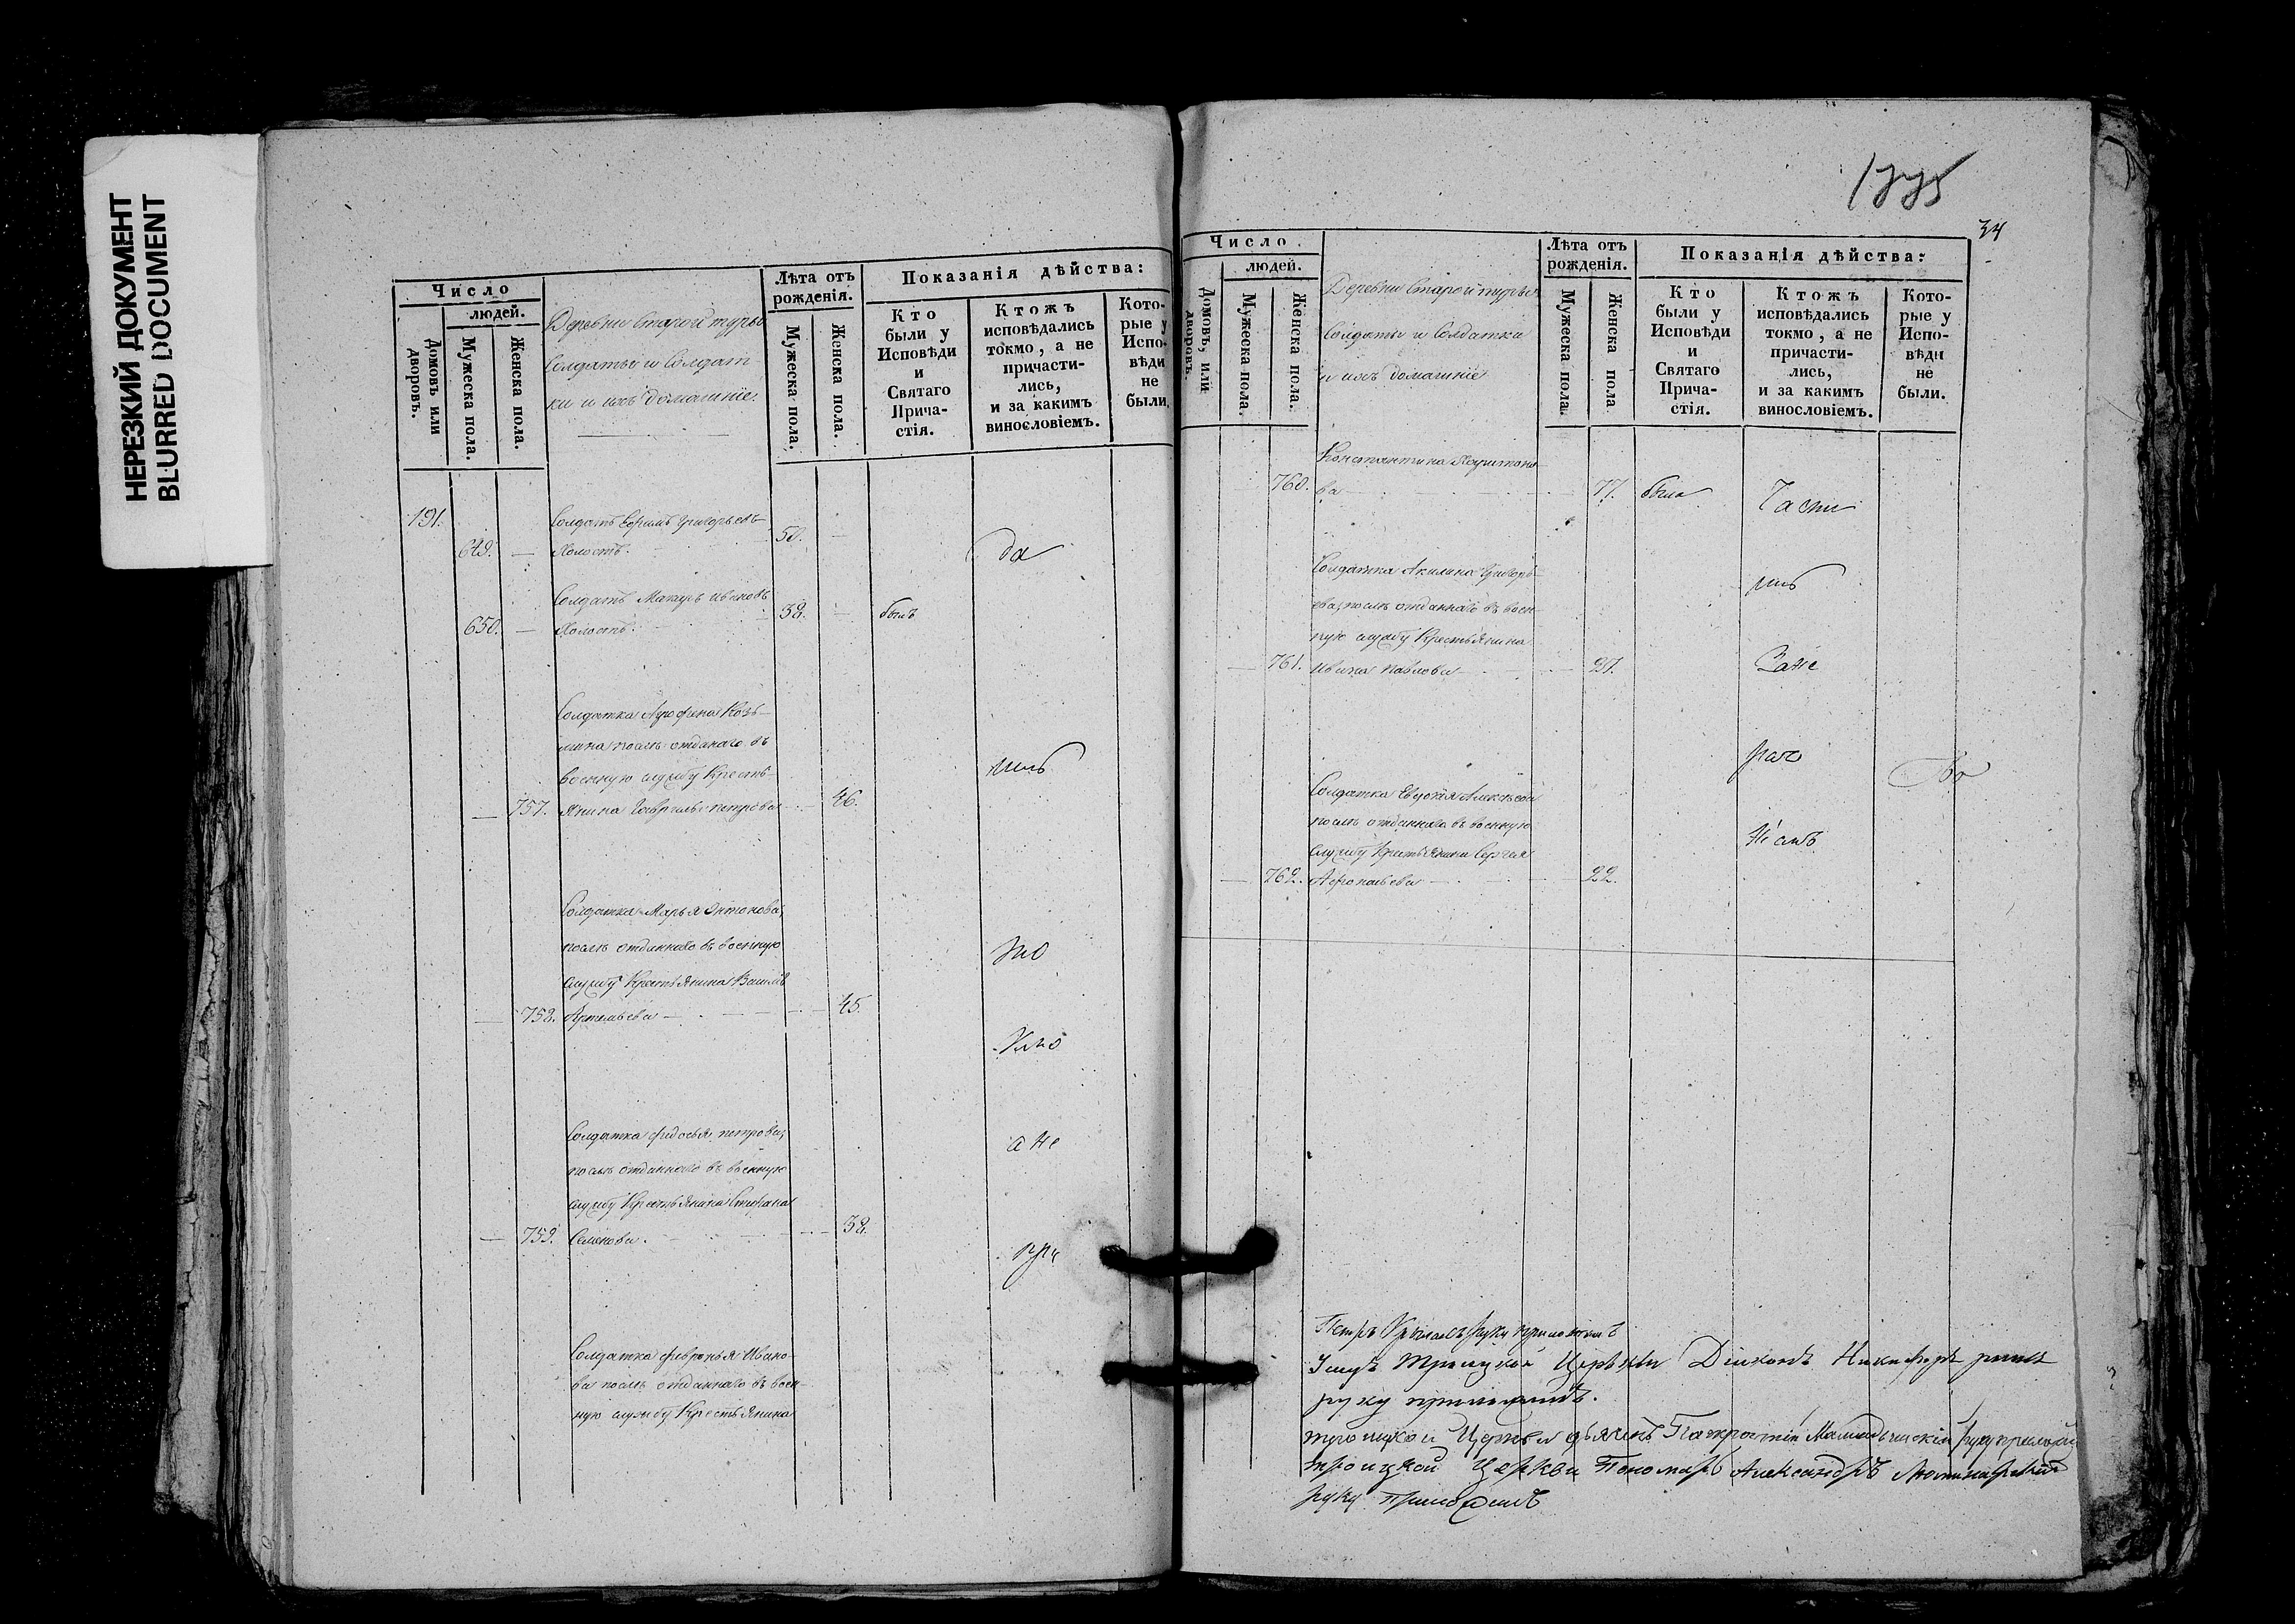 НЕРЕЗКИЙ ДОКУМЕНТ
BLURRED DOCUMENT
Число
людей.
Домовъ или дворовъ.
Мужеска пола.
Женска пола.
Деревни Старой турьи
Солдаты и Солдат-
ки и ихъ домашніе.
Лѣта отъ рожденія.
Мужеска пола.
Женска пола.
Показанія дѣйства:
Кто были у Исповѣди и Святаго Прича-стія.
Ктожъ исповѣдались токмо, а не причасти-лись, и за какимъ винословіемъ.
Кото-рые у Испо-вѣди не были.
191.
Солдатъ Ефимъ Григорьевъ
649. — Холостъ. 50. —
да
Солдатъ Макаръ Ивановъ
650. — Холостъ. 38. — былъ
Солдатка Агрофена Козь-
мина послѣ отданаго въ
военную службу Кресть-
— 757. янина Гаврилы петрова — 46.
Солдатка Марья Онтонова,
послѣ отданнаго въ военную
службу Крестьянина Василья
— 758. Артемьева — 45.
а не
Солдатка федосья петрова,
послѣ отданнаго въ военную
службу Крестьянина Стефана
— 759. Семенова. — 38.
при
Солдатка февронья Ивано-
ва послѣ отданнаго въ воен-
ную службу Крестьянина
1775
34
Число
людей.
Домовъ, или дворовъ.
Мужеска пола.
Женска пола.
Деревни Старой турьи
Солдаты и Солдатки
и ихъ домашніе
Лѣта отъ рожденія.
Мужеска пола.
Женска пола
Показанія дѣйства:
Кто были у Исповѣди и Святаго Прича-стія.
Ктожъ исповѣдались токмо, а не причасти-лись, и за какимъ винословіемъ.
Кото-рые у Испо-вѣди не были.
Константина Харитоно-
760. ва — 77. была
Части
Солдатка Акилина Григорь-
ева, послѣ отданнаго въ воен-
ную службу Крестьянина
— 761. Ивана павлова — 37.
Солдатка Евдокія Алексѣева
послѣ отданнаго въ военную
службу Крестьянина Сергея
— 762. Афонасьева — 22.
Петръ руку приложилъ
Троицкой Церкви Діаконъ Никифоръ
руку приложилъ.
троицкой Церкви дьячекъ Панкратій руку приложилъ
троицкой Церкви Пономарь Александръ
руку Приложилъ